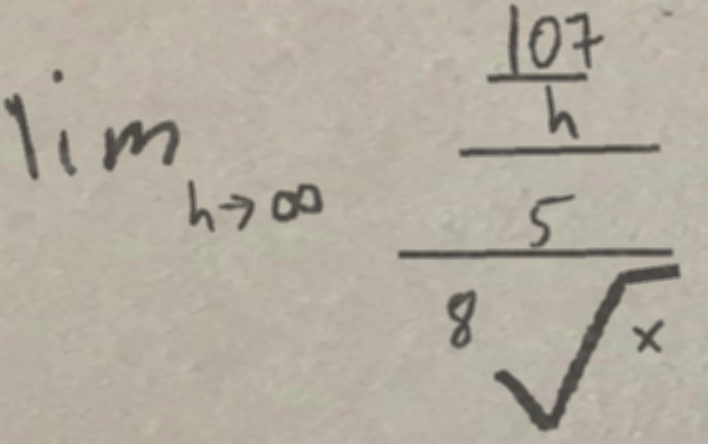 lim h→∞ 107
h
5
8√x